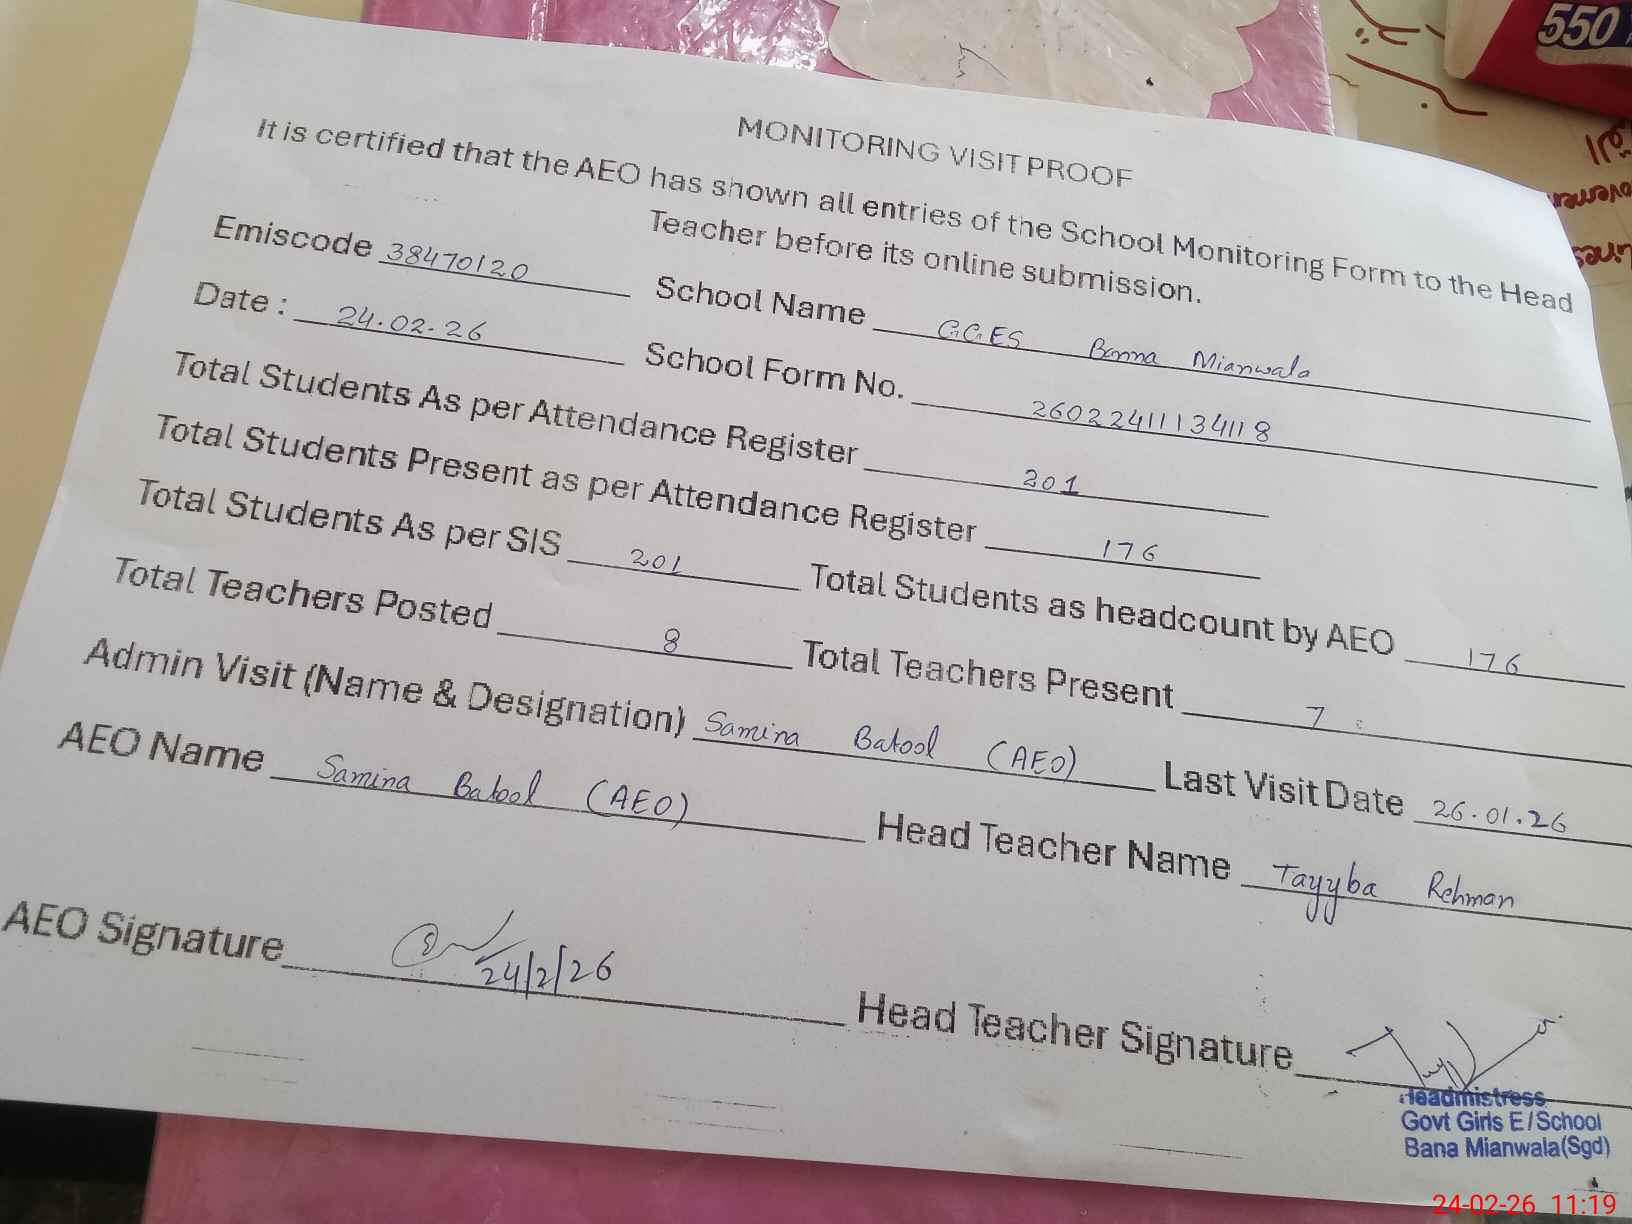 550
MONITORING VISIT PROOF
It is certified that the AEO has shown all entries of the School Monitoring Form to the Head
Teacher before its online submission.
Emiscode 38470120 School Name GGES Banna Mianwala
Date : 24.02.26 School Form No. 26022411134118
Total Students As per Attendance Register 201
Total Students Present as per Attendance Register 176
Total Students As per SIS 201 Total Students as headcount by AEO 176
Total Teachers Posted 8 Total Teachers Present 7
Admin Visit (Name & Designation) Samina Batool (AEO) Last Visit Date 26.01.26
AEO Name Samina Batool (AEO) Head Teacher Name Tayyba Rehman
AEO Signature 24/2/26 Head Teacher Signature
Headmistress
Govt Girls E/School
Bana Mianwala(Sgd)
24-02-26 11:19